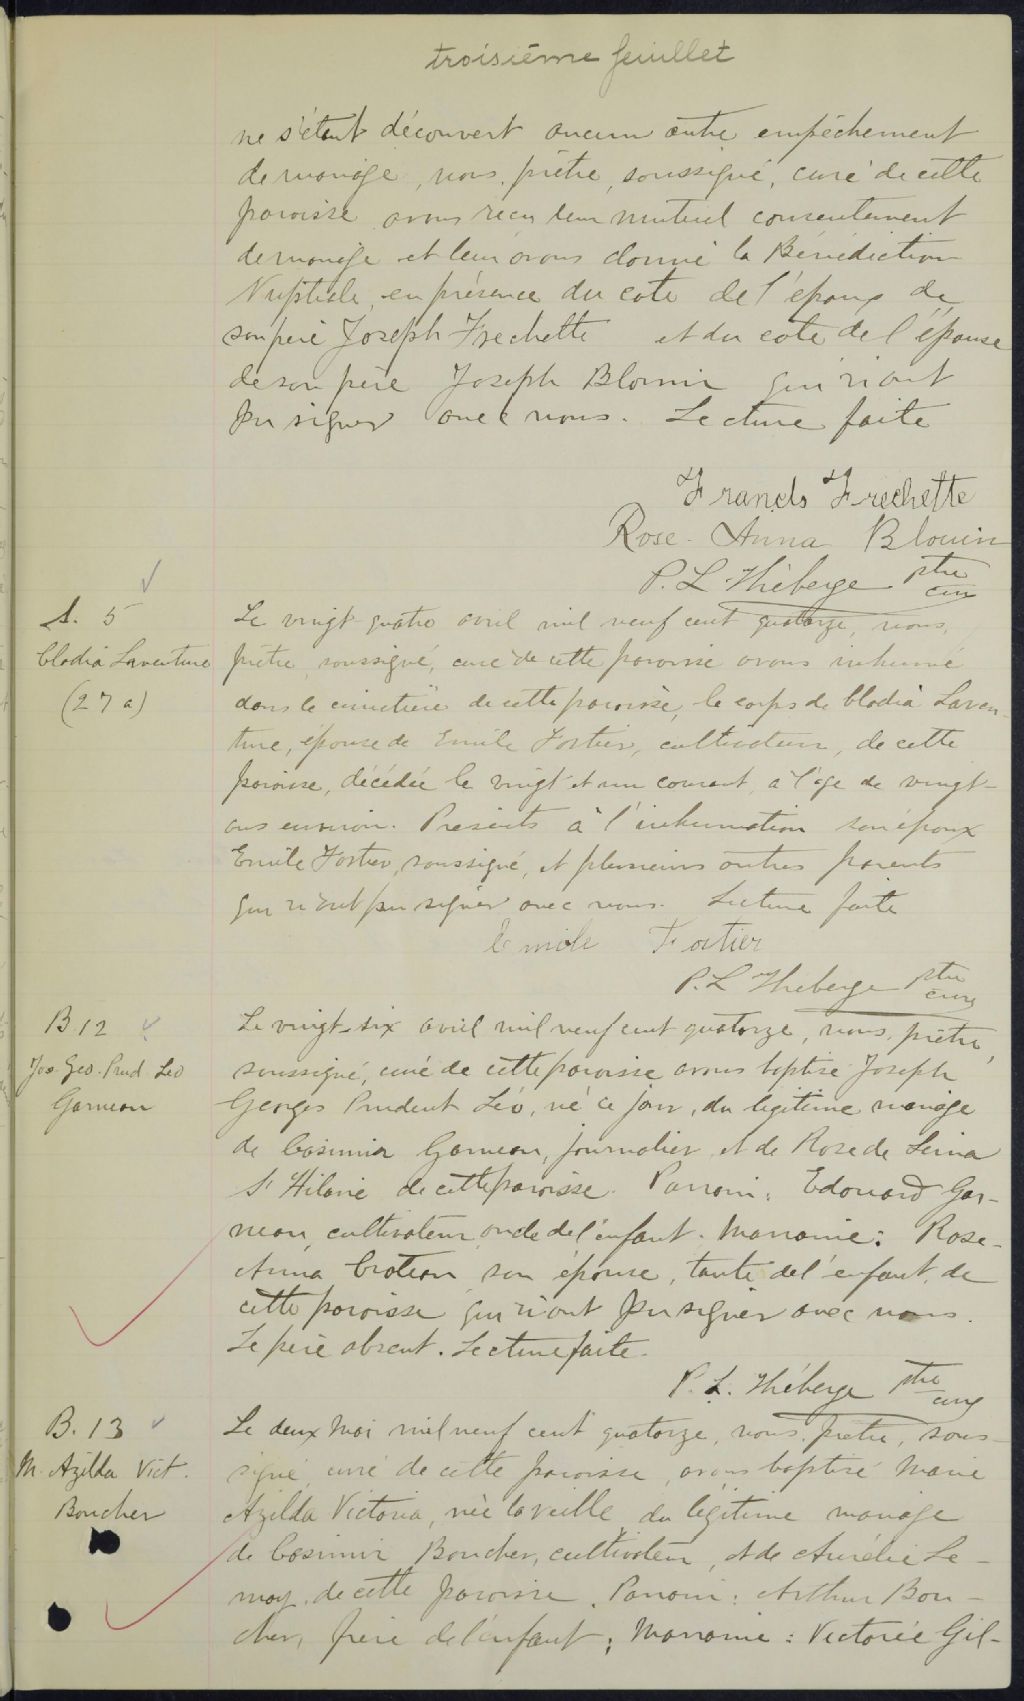 troisième feuillet
ne s'étant découvert aucun autre empêchement
de mariage, nous, prêtre, soussigné, curé de cette
paroisse avons reçu leur mutuel consentement
de mariage et leur avons donné la Bénédiction
Nuptiale en présence du coté de l'époux de
son père Joseph Frechette et du coté de l'épouse
de son père Joseph Blouin qui n'ont
pu signer avec nous. Lecture faite
Francis Frechette
Rose-Anna Blouin
P. L. Théberge ptre
curé
S. 5
Clodia Laventure
(27 a)
Le vingt quatre avril mil neuf cent quatorze, nous,
prêtre soussigné, curé de cette paroisse avons inhumé
dans le cimetière de cette paroisse, le corps de Clodia Laven-
ture, épouse de Emile Fortier, cultivateur, de cette
paroisse, décédée le vingt et un courant, à l'âge de vingt-
ans environ. Presents à l'inhumation son époux
Emile Fortier, soussigné, et plusieurs autres parents
qui n'ont pu signer avec nous. Lecture faite
Emile Fortier
P. L Theberge ptre
curé
B. 12
Jos. Geo. Prud. Léo
Garneau
Le vingt-six avril mil neuf cent quatorze, nous, prêtre,
soussigné, curé de cette paroisse avons baptisé Joseph
Georges Prudent Léo, né ce jour, du légitime mariage
de Casimir Garneau, journalier et de Rose de Lima
St Hilaire de cette paroisse. Parrain: Edouard Gar-
neau, cultivateur, oncle de l'enfant. Marraine: Rose-
Anna Croteau son épouse, tante de l'enfant, de
cette paroisse qui n'ont pu signer avec nous.
Le père absent. Lecture faite.
P. L. Théberge ptre
curé
B. 13
M. Azilda Vict.
Boucher
Le deux Mai mil neuf cent quatorze, nous, prêtre, sous-
signé curé de cette paroisse, avons baptisé Marie
Azilda Victoria, née la veille du légitime mariage
de Casimir Boucher, cultivateur, et de Aurélie Le-
may, de cette paroisse. Parrain: Arthur Bou-
cher, frère de l'enfant; Marraine: Victorée Gil-